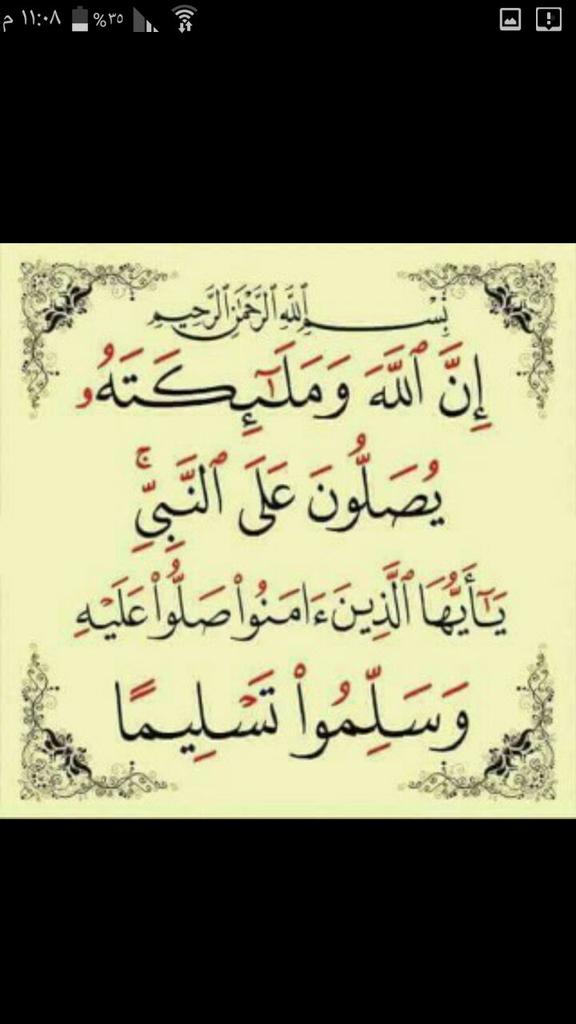 ١١:٠٨ م %٣٥
بِسْمِ ٱللَّهِ ٱلرَّحْمَٰنِ ٱلرَّحِيمِ
إِنَّ ٱللَّهَ وَمَلَٰٓئِكَتَهُۥ
يُصَلُّونَ عَلَى ٱلنَّبِىِّۚ
يَٰٓأَيُّهَا ٱلَّذِينَ ءَامَنُوا۟ صَلُّوا۟ عَلَيْهِ
وَسَلِّمُوا۟ تَسْلِيمًا